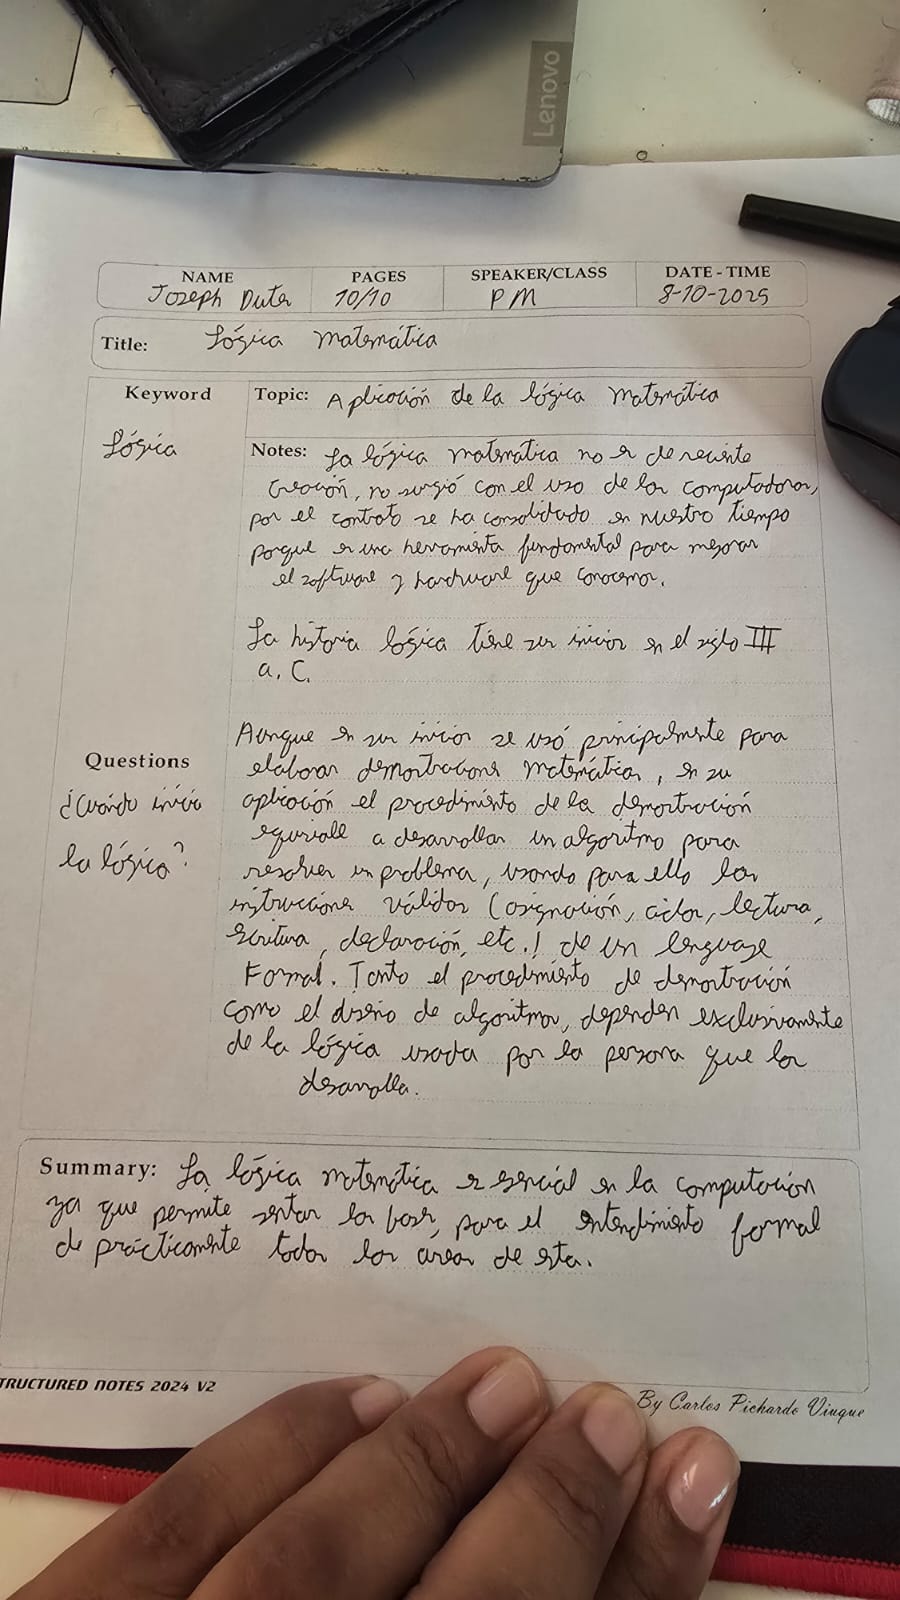 Lenovo
NAME PAGES SPEAKER/CLASS DATE - TIME
Joseph 10/10 PM 8-10-2025
Title: Lógica matemática
Keyword
Lógica
Topic: Aplicación de la lógica matemática
Notes: La lógica matemática no es de reciente
creación, no surgió con el uso de las computadoras,
por el contrato se ha consolidado en nuestro tiempo
porque es una herramienta fundamental para mejorar
el software y hardware que conocemos.
La historia lógica tiene sus inicios en el siglo III
a.C.
Questions
¿Cuándo inicio
la lógica?
Aunque en sus inicios se usó principalmente para
elaborar demostraciones matemáticas, en su
aplicación el procedimiento de la demostración
equivale a desarrollar un algoritmo para
resolver un problema, usando para ello las
instrucciones válidas (asignación, ciclos, lectura,
escritura, declaración, etc.) de un lenguaje
Formal. Tanto el procedimiento de demostración
como el diseño de algoritmos, dependen exclusivamente
de la lógica usada por la persona que los
desarrolla.
Summary: La lógica matemática es esencial en la computación
ya que permite sentar las bases, para el entendimiento formal
de prácticamente todas las areas de esta.
TRUCTURED NOTES 2024 V2
By Carlos Pichardo Viuque